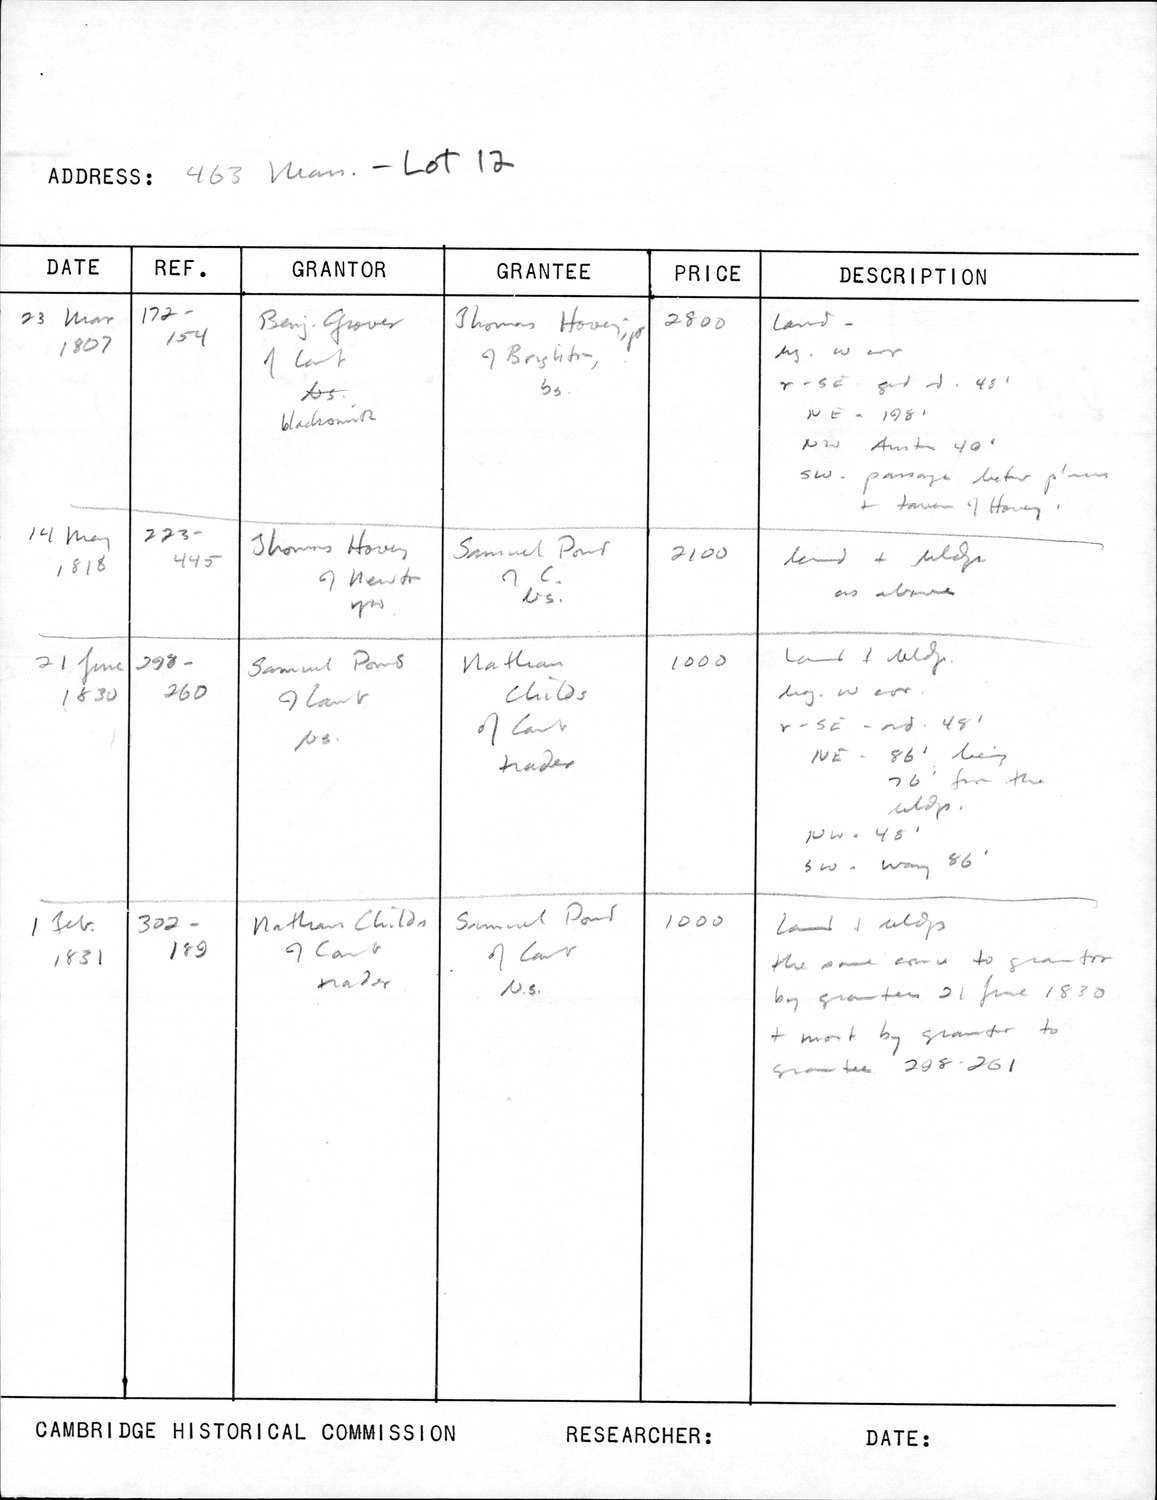 ADDRESS: 463 Mass. - Lot 12
DATE REF. GRANTOR GRANTEE PRICE DESCRIPTION
23 Mar 172- Benj. Grover Thomas Hovey, jr 2800 Land -
1807 154 of Camb of Brighton, beg. w cor
bs. bs. r - SE - gd rd. 48'
blacksmith NE - 198'
NW Austin 40'
SW. passage betw p'mises
+ tavern of Hovey.
14 May 223- Thomas Hovey Samuel Pond 2100 land + bldgs
1818 445 of Newton of C. as above
bs.
21 June 298- Samuel Pond Nathan 1000 Land + bldgs.
1830 260 of Camb Childs beg. w cor.
bs. of Camb r - SE - rd. 48'
trader NE - 86' being
26' from the
bldgs.
NW. 48'
SW. way 86'
1 Feb. 302- Nathan Childs Samuel Pond 1000 Land + bldgs
1831 189 of Camb of Camb the same conv to grantor
trader bs. by grantee 21 June 1830
+ mort by grantor to
grantee 298-261
CAMBRIDGE HISTORICAL COMMISSION RESEARCHER: DATE: